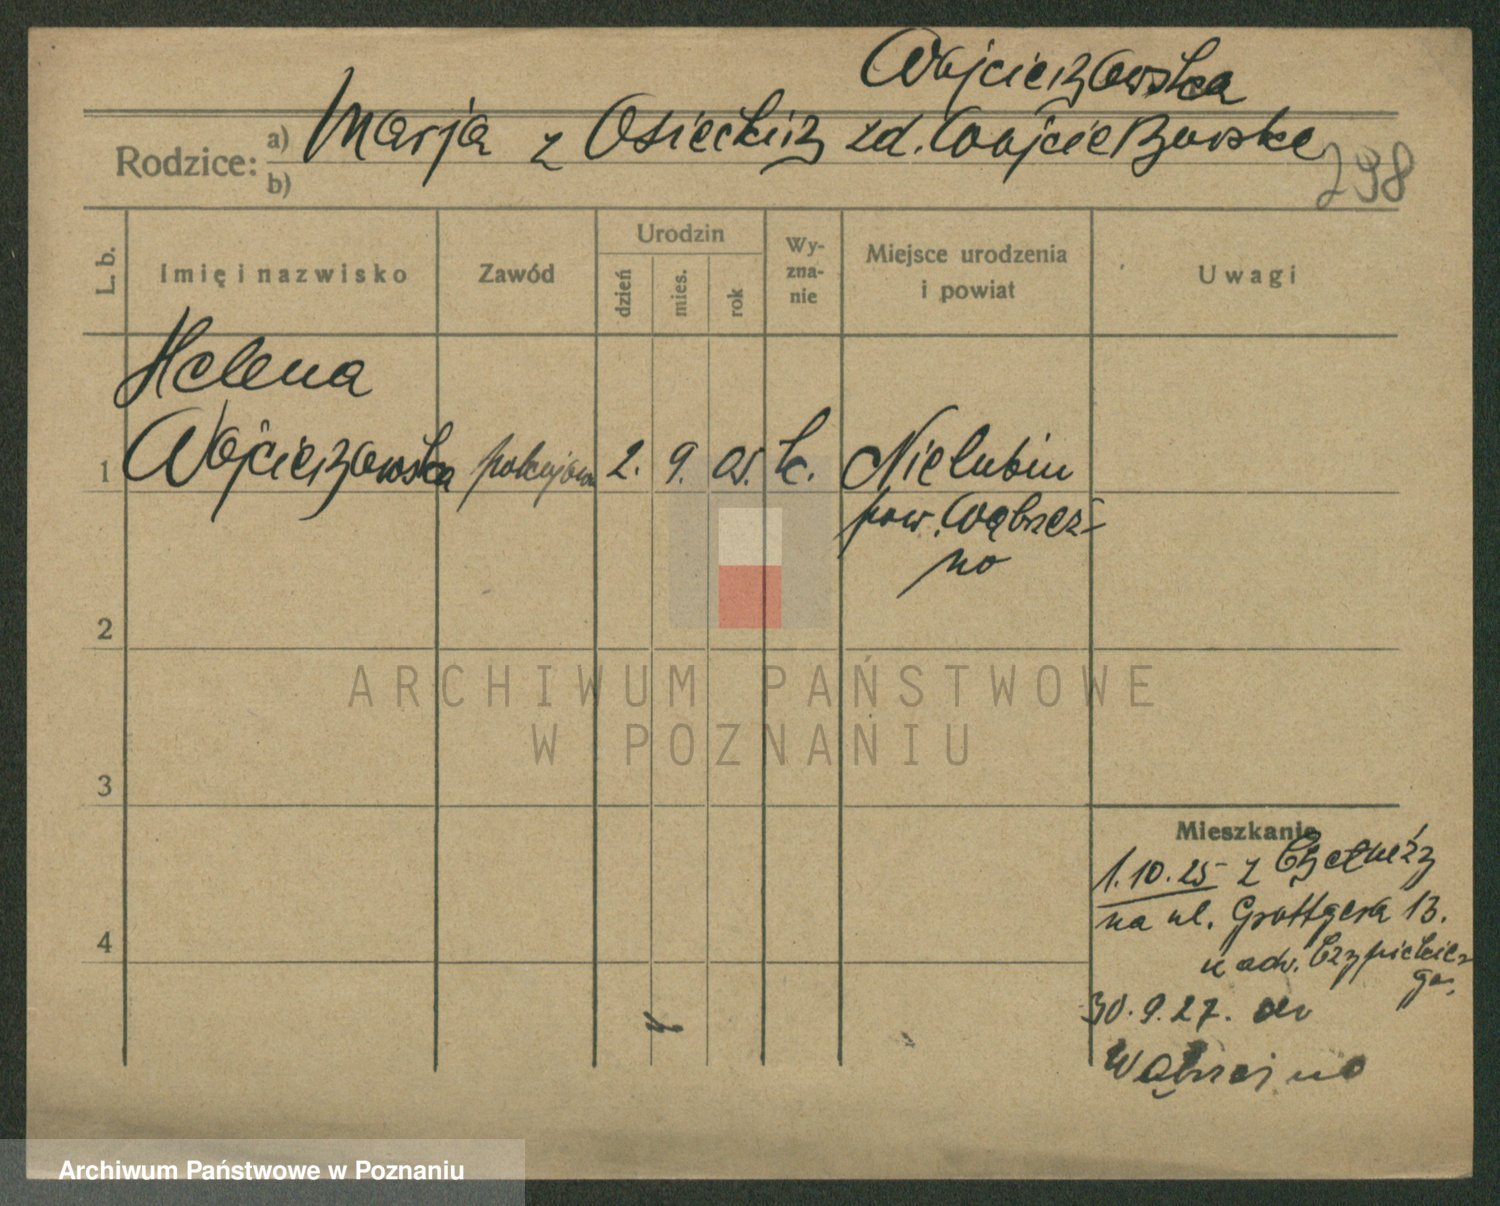 Wojciechowska
Rodzice: a) Marja z Osieckich zd. Wojciechowska
b)
298
L. b.
Imię i nazwisko
Zawód
Urodzin
dzień
mies.
rok
Wy-
zna-
nie
Miejsce urodzenia
i powiat
Uwagi
Helena
1 Wojciechowska pokojowa 2. 9. 05. k. Nielubin
pow. Wąbrzeź-
no
2
3
4
ARCHIWUM PAŃSTWOWE
W POZNANIU
Mieszkanie
1.10.25 z
na ul. Grottgera 13.
u adw. Czypickie-
go.
30.9.27. do
Wąbrzeźno
Archiwum Państwowe w Poznaniu